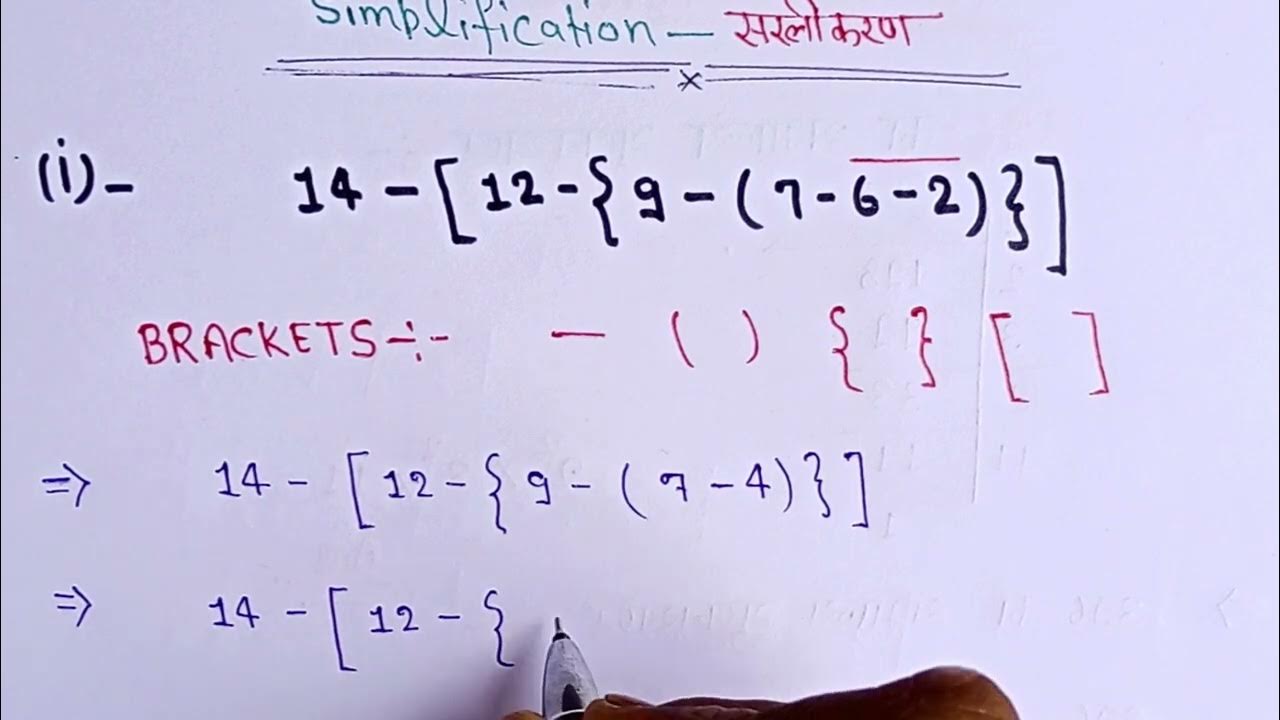 Simplification — सरलीकरण
(i)- 14 - [12 - {9 - (7 - 6̅ ̅-̅ ̅2̅)}]
BRACKETS ÷- — ( ) { } [ ]
⇒ 14 - [12 - {9 - (7 - 4)}]
⇒ 14 - [12 - {